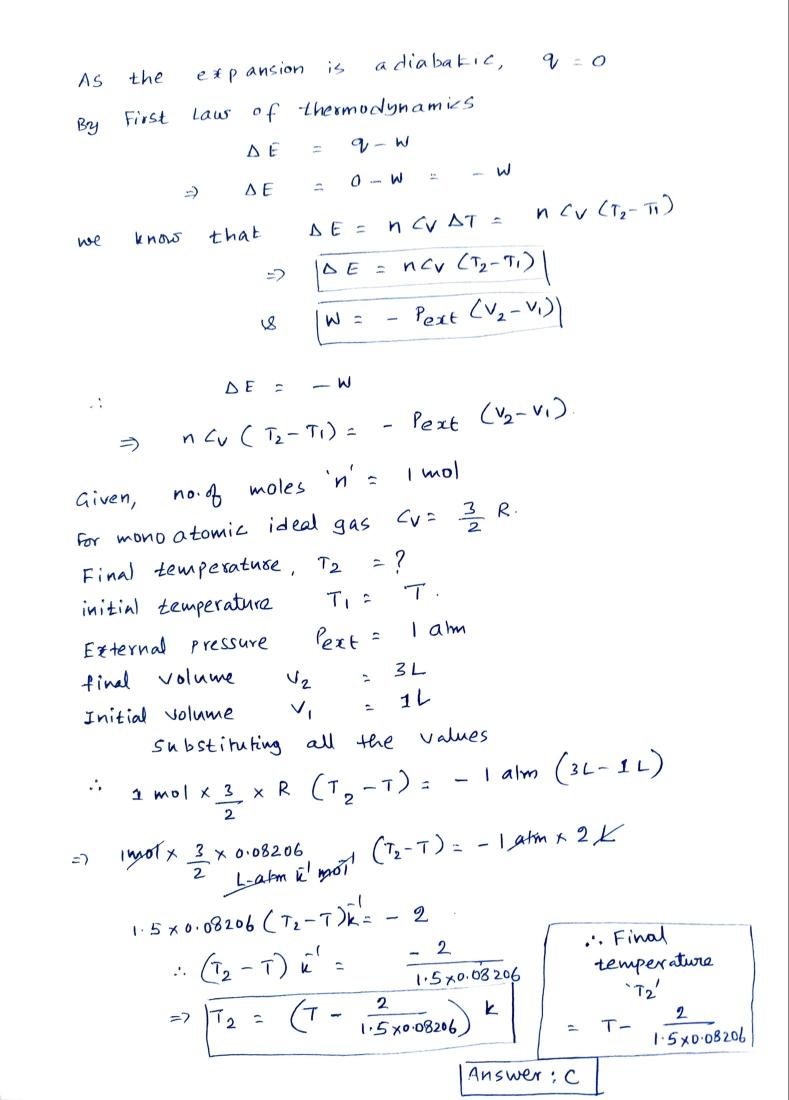 As the expansion is adiabatic, q = 0
By First Law of thermodynamics
ΔE = q - W
⇒ ΔE = 0 - W = - W
we know that ΔE = n Cv ΔT = n Cv (T₂ - T₁)
⇒ ΔE = n Cv (T₂ - T₁)
& W = - Pext (V₂ - V₁)
∴ ΔE = - W
⇒ n Cv (T₂ - T₁) = - Pext (V₂ - V₁).
Given, no. of moles 'n' = 1 mol
for mono atomic ideal gas Cv = 3/2 R.
Final temperature, T₂ = ?
initial temperature T₁ = T.
External pressure Pext = 1 atm
final volume V₂ = 3L
Initial volume V₁ = 1L
Substituting all the values
∴ 1 mol × 3/2 × R (T₂ - T) = - 1 atm (3L - 1L)
⇒ 1 mol × 3/2 × 0.08206 L-atm K⁻¹ mol⁻¹ (T₂ - T) = - 1 atm × 2 L
1.5 × 0.08206 (T₂ - T) K⁻¹ = - 2
∴ (T₂ - T) K⁻¹ = - 2 / 1.5 × 0.08206
⇒ T₂ = (T - 2 / 1.5 × 0.08206) K
∴ Final
temperature
'T₂'
= T - 2 / 1.5 × 0.08206
Answer : C